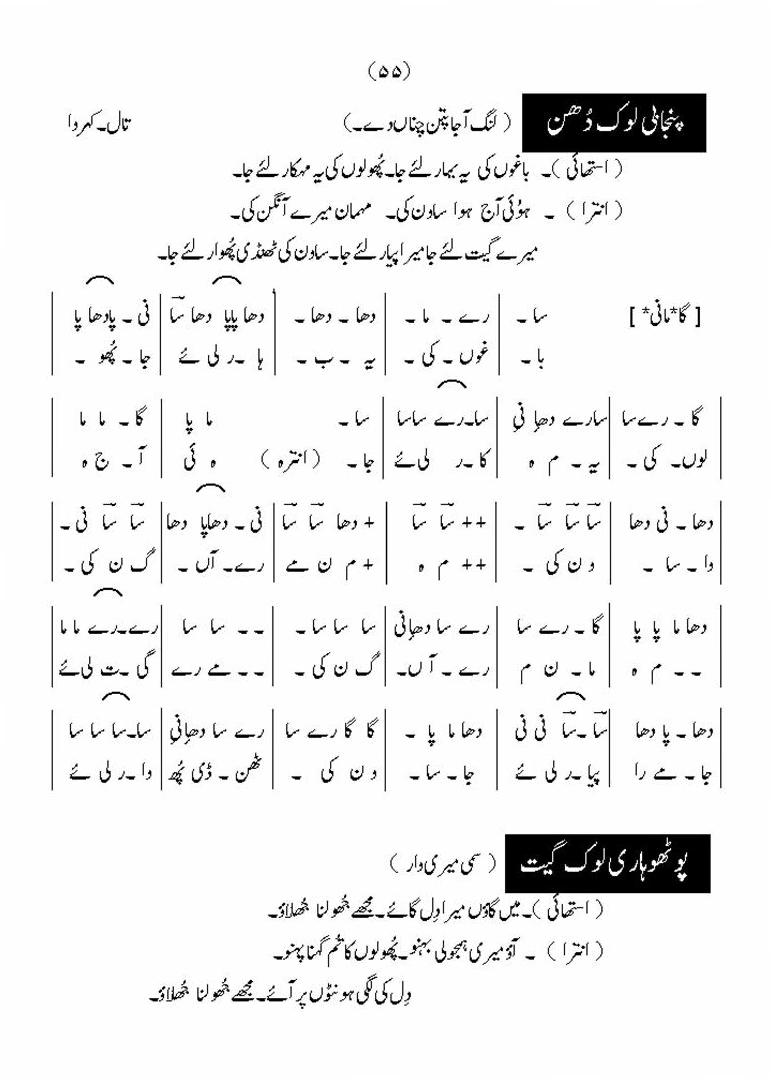 (۵۵)
پنجابی لوک دُھن ( لنگ آجا پتن چناں دے۔) تال۔کہروا
( استھائی )۔ باغوں کی یہ بہار لئے جا۔پُھولوں کی یہ مہکار لئے جا۔
( انترا ) ۔ ہوئی آج ہوا ساون کی۔ مہمان میرے آنگن کی۔
میرے گیت لئے جا میرا پیار لئے جا۔ساون کی ٹھنڈی پُھوار لئے جا۔
[ گا* مانی* ] سا۔ | رے ۔ ما۔ | دھا ۔ دھا ۔ | دھا پاپا دھا سا | نی ۔ پادھا پا |
با۔ | غوں ۔ کی ۔ | یہ ۔ ب ۔ | ہا ۔ر لی ئے | جا ۔ پُھو ۔ |
گا ۔ رے سا | سارے دھا نی | سا۔رے ساسا | سا ۔ ما پا | گا۔ ما ما |
لوں۔ کی ۔ | یہ ۔ م ہ | کا ۔ر لی ئے | جا۔ ( انترہ ) ہ ئی | آ ۔ ج ہ |
دھا ۔ نی دھا | سا سا سا ۔ | ++ سا سا | + دھا سا سا | نی ۔ دھاپا دھا | سا سا نی ۔ |
وا ۔ سا ۔ | و ن کی ۔ | ++ م ہ | + م ن مے | رے۔ آں ۔ | گ ن کی ۔ |
دھا ما پا پا | گا ۔ رے سا | رے سا دھانی | سا سا سا۔ | ۔ ۔ سا سا | رے۔رے ما ما |
۔ ۔ م ہ | ما ۔ ن م | رے ۔ آں۔ | گ ن کی ۔ | ۔ ۔ مے رے | گی ۔ت لی ئے |
دھا ۔ پا دھا | سا ۔سا نی نی | دھا ما پا ۔ | گا گا رے سا | رے سا دھانی | سا۔سا سا سا |
جا ۔ مے را | پیا ۔ر لی ئے | جا ۔ سا ۔ | و ن کی ۔ | ٹھن ۔ ڈی پُھ | وا ۔ر لی ئے |
پوٹھوہاری لوک گیت ( سمی میری وار )
( استھائی )۔ میں گاؤں میرا دِل گائے۔ مجھے جُھولنا جُھلاؤ۔
( انترا ) ۔ آؤ میری ہمجولی بہنو۔پُھولوں کا تُم گہنا پہنو۔
دِل کی لگی ہونٹوں پر آئے۔ مجھے جُھولنا جُھلاؤ۔